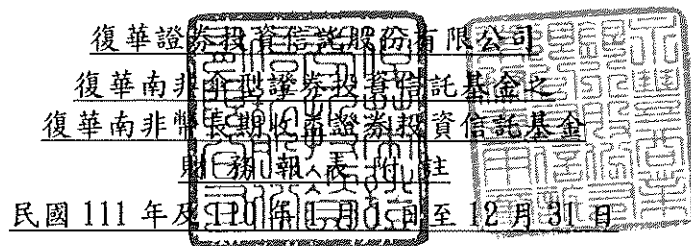 復華證券投資信託股份有限公司
復華南非傘型證券投資信託基金之
復華南非幣長期收益證券投資信託基金
財務報表附註
民國 111 年及 110 年 1 月 1 日至 12 月 31 日